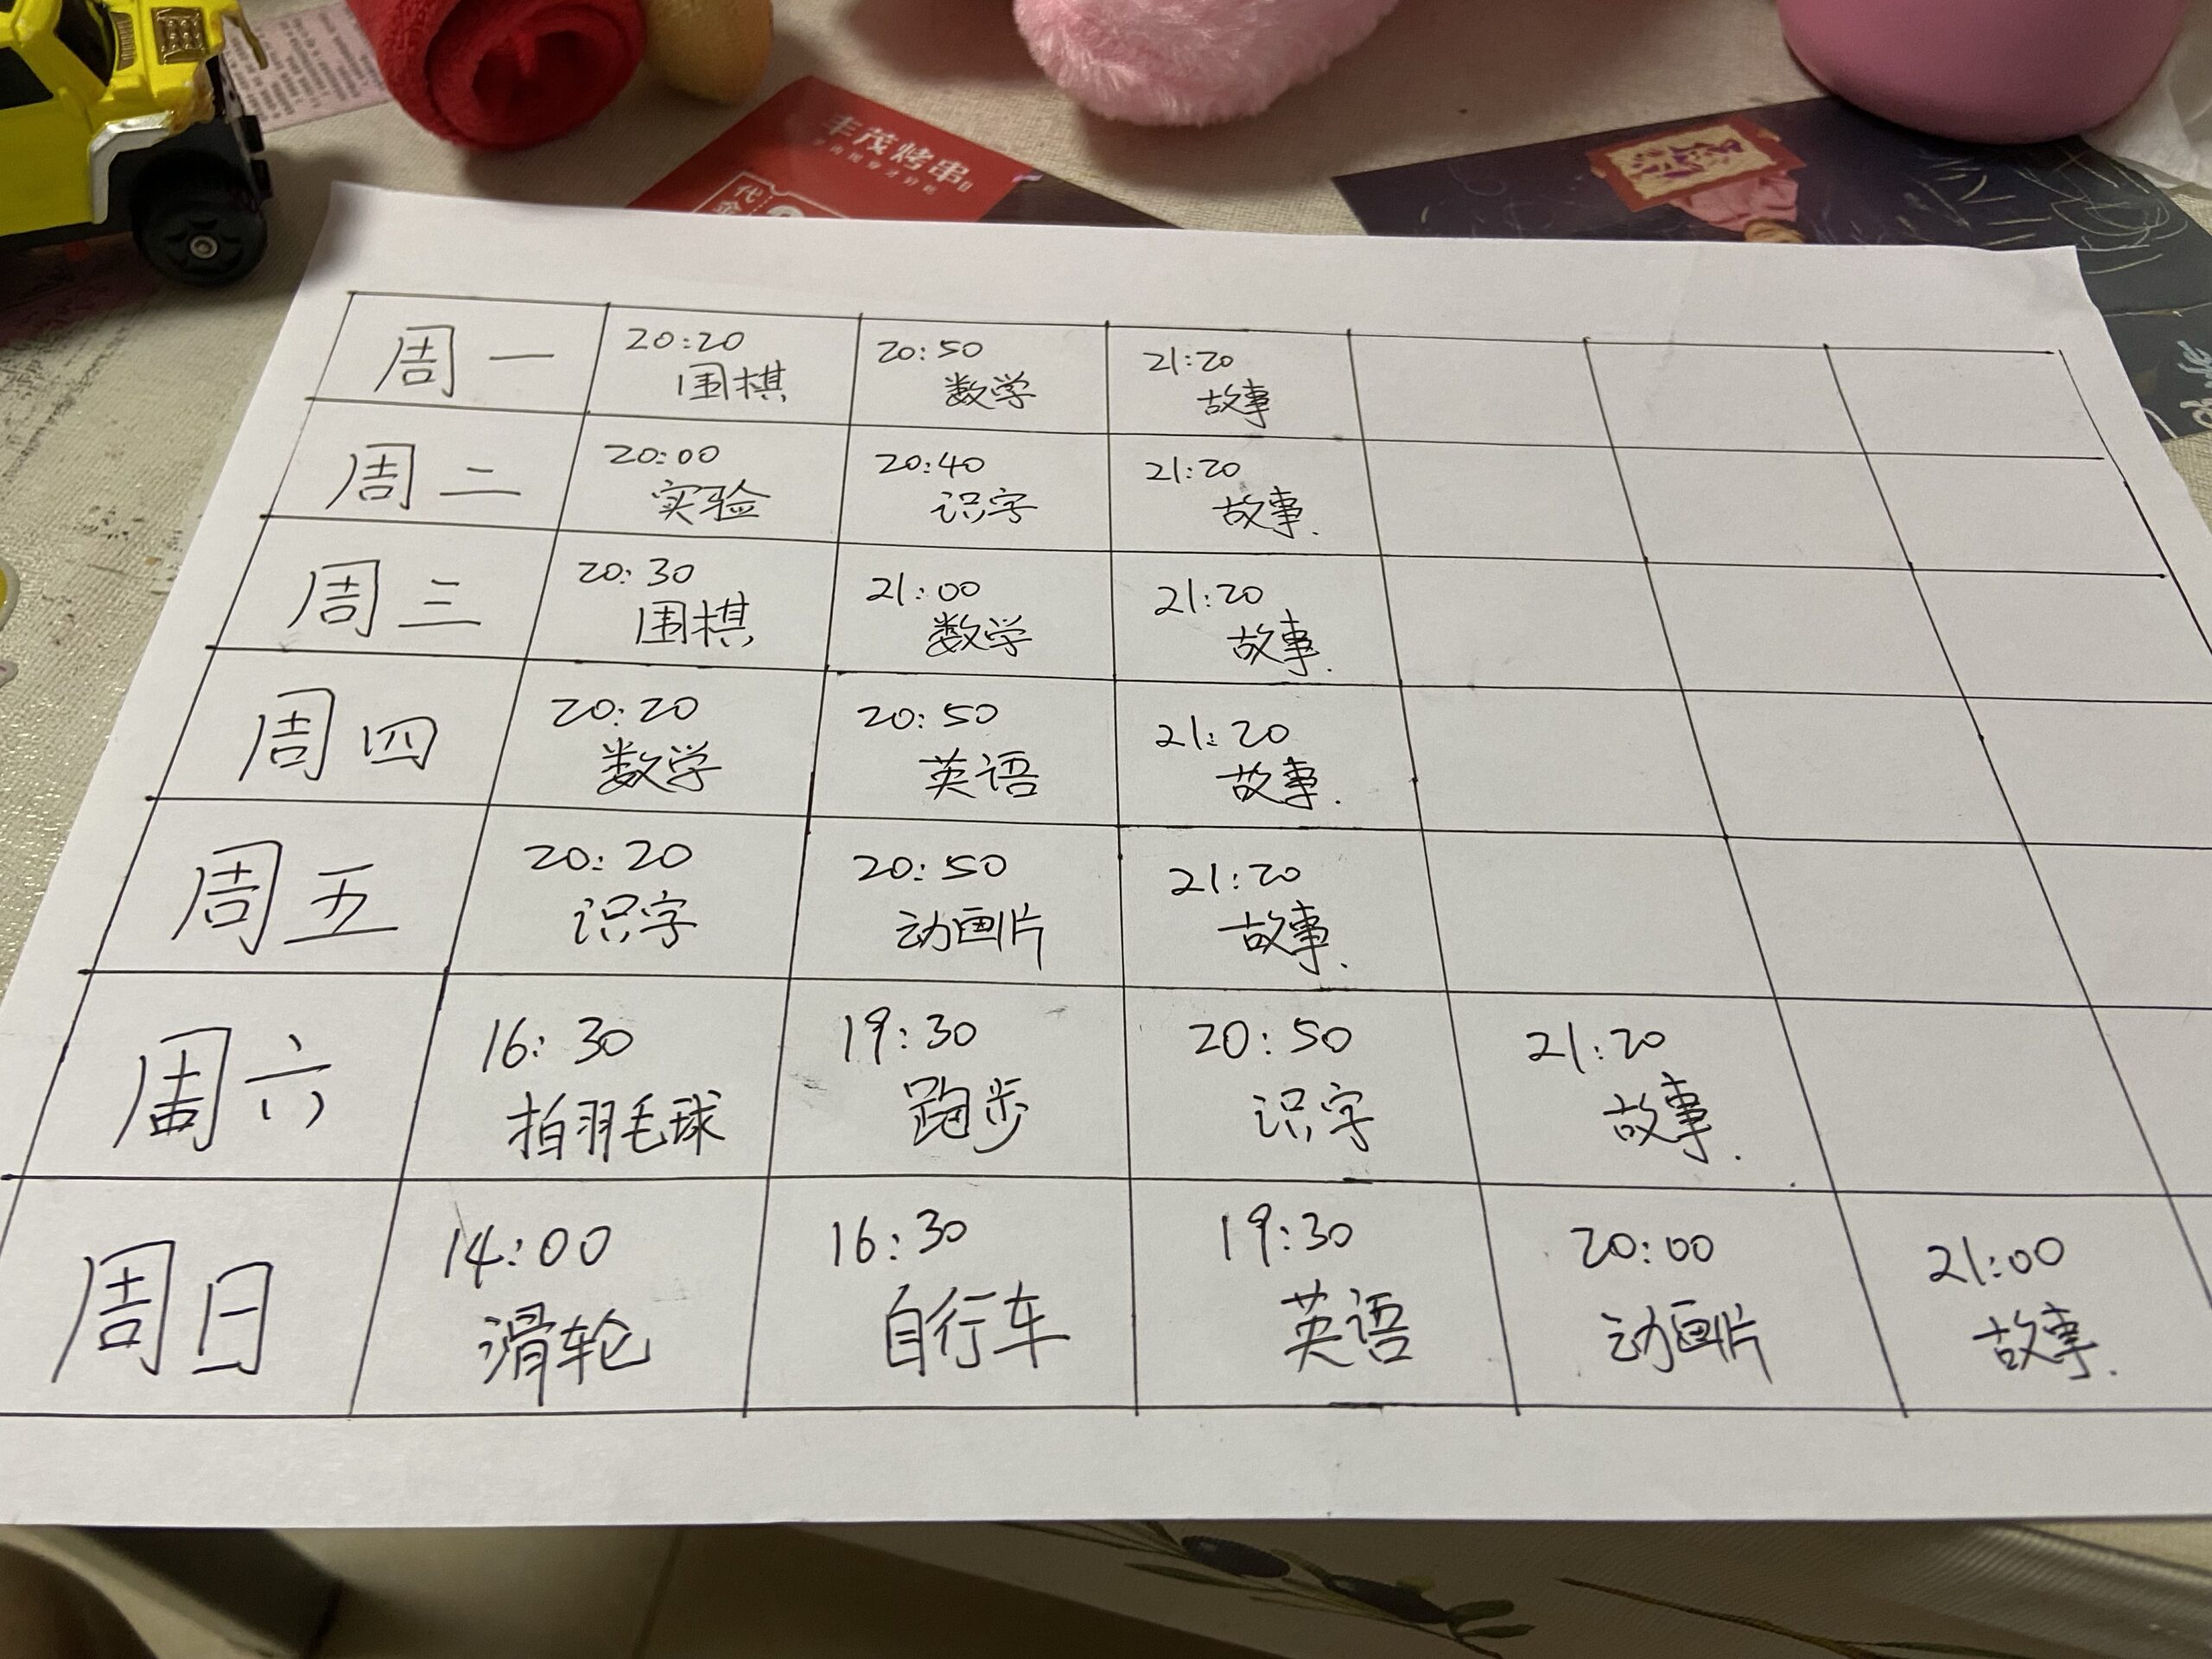 丰茂烤串
代金
周一
20:20
围棋
20:50
数学
21:20
故事
周二
20:00
实验
20:40
识字
21:20
故事.
周三
20:30
围棋
21:00
数学
21:20
故事.
周四
20:20
数学
20:50
英语
21:20
故事.
周五
20:20
识字
20:50
动画片
21:20
故事.
周六
16:30
拍羽毛球
19:30
跑步
20:50
识字
21:20
故事.
周日
14:00
滑轮
16:30
自行车
19:30
英语
20:00
动画片
21:00
故事.